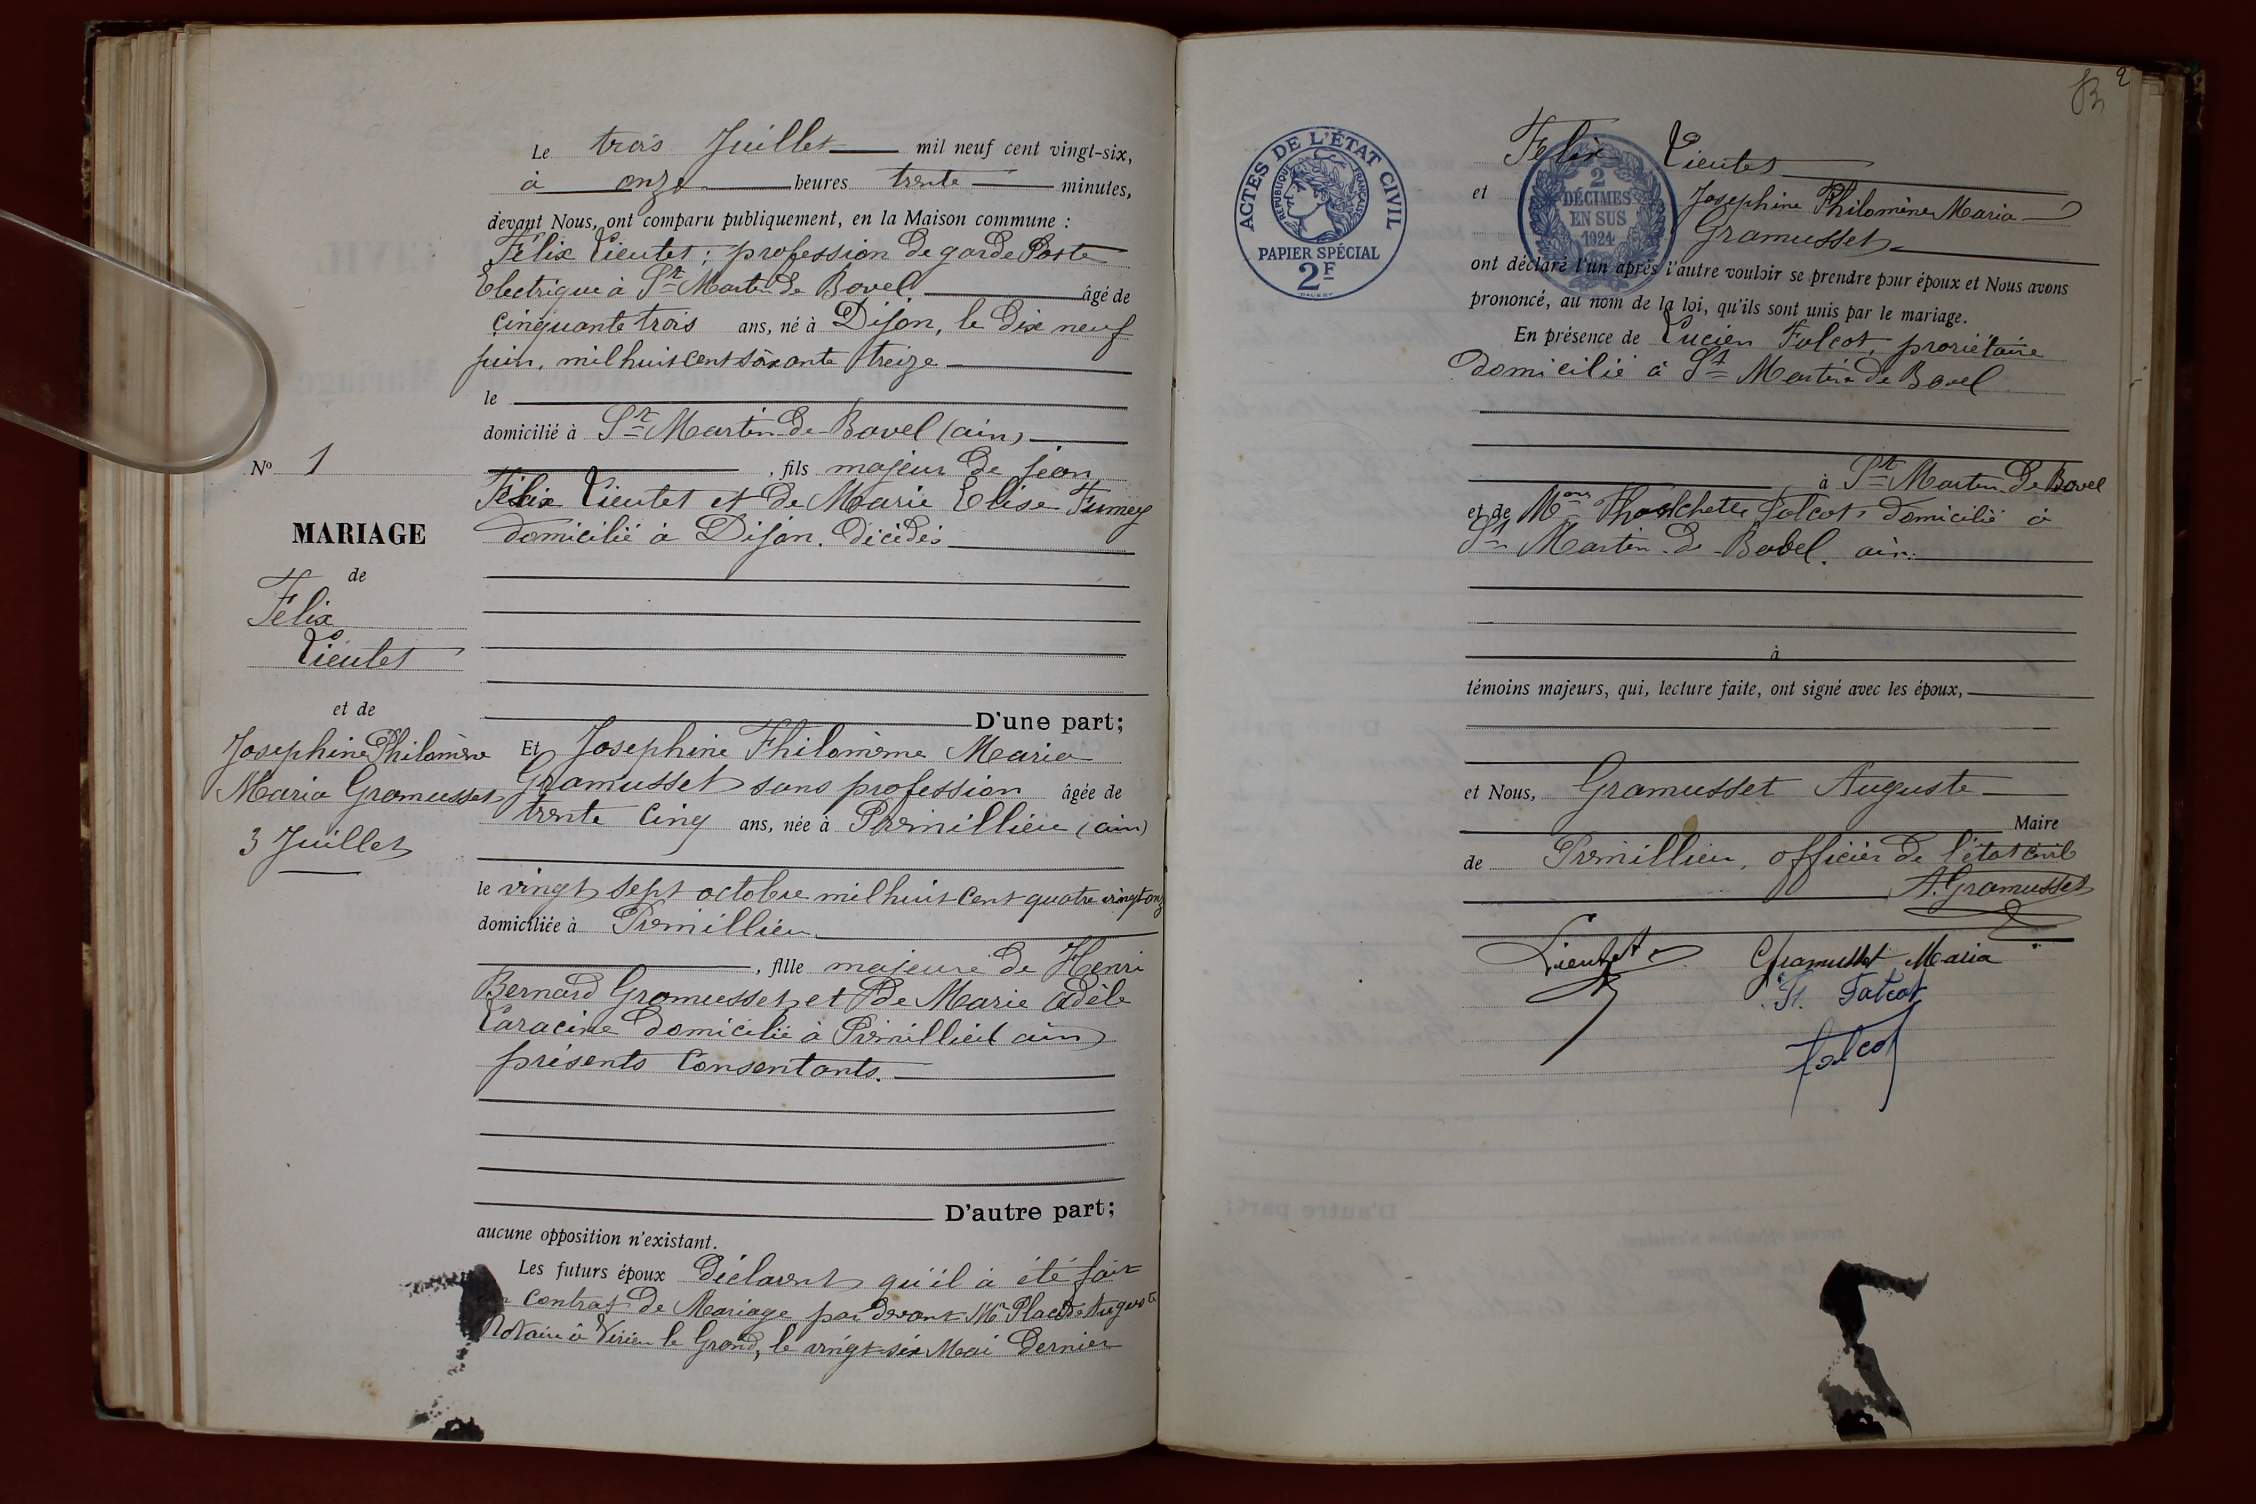 Le trois Juillet mil neuf cent vingt-six,
à onze heures trente minutes,
devant Nous, ont comparu publiquement, en la Maison commune :
Félix Lieutet ; profession de garde Poste
Electrique à St Martin de Bavel. âgé de
cinquante trois ans, né à Dijon, le dix neuf
juin, mil huit cent soixante treize
le
domicilié à St Martin-de-Bavel (ain)
, fils majeur de jean
Félix Lieutet et de Marie Elise Fumey
domicilié à Dijon. décédés
D'une part;
Et Josephine Philomème Maria
Gramusset sans profession âgée de
trente cinq ans, née à Prémillieu (ain)
le vingt sept octobre mil huit cent quatre vingt onze
domiciliée à Prémillieu
, fille majeure de Henri
Bernard Gramusset et de Marie Adèle
Laracine domicilié à Prémillieu ain
présents Consentants.
D'autre part;
aucune opposition n'existant.
Les futurs époux déclarent qu'il à été fait
contrat de Mariage par devant Me Placide Auguste
Notaire à Virieu le Grand, le vingt-six Mai dernier
No 1
MARIAGE
de
Félix
Lieutet
et de
Josephine Philomène
Maria Gramusset
3 Juillet
2
ACTES DE L'ÉTAT CIVIL
RÉPUBLIQUE FRANÇAISE
PAPIER SPÉCIAL
2F
2
DÉCIMES
EN SUS
1924
Felix Lieutet
et Josephine Philomène Maria
Gramusset
ont déclaré l'un après l'autre vouloir se prendre pour époux et Nous avons
prononcé, au nom de la loi, qu'ils sont unis par le mariage.
En présence de Lucien Falcot, proriétaire
domicilié à St Martin de Bavel
à St Martin de Bavel
et de Falcot, domicilié à
St Martin-de-Babel. ain.
à
témoins majeurs, qui, lecture faite, ont signé avec les époux,
et Nous, Gramusset Auguste
Maire
de Prémillieu, officier de l'état civil
A. Gramusset
Lieutet
Gramusset Maria
Falcot
Falcot